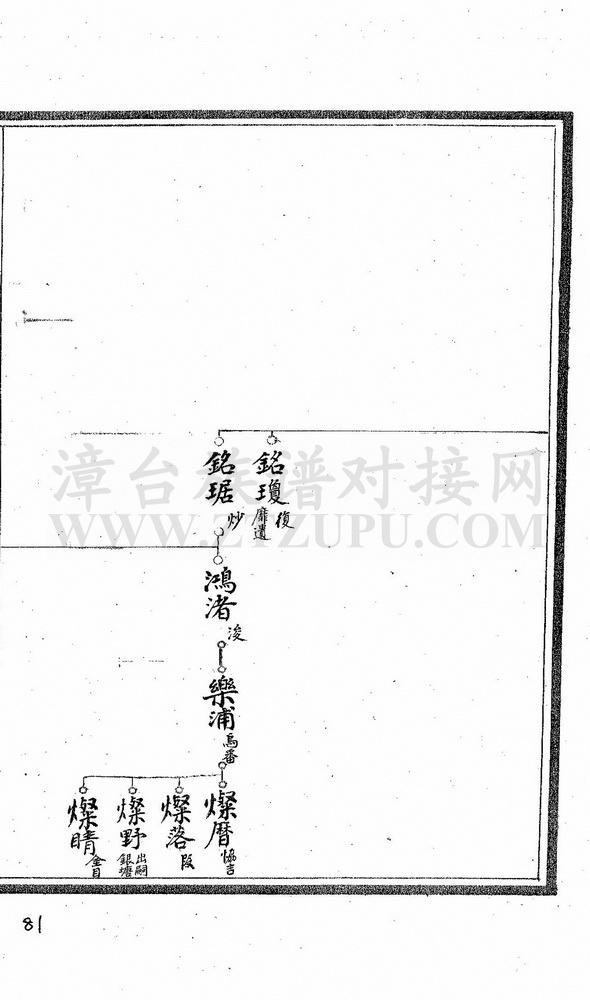 銘瓊
復
靡遺
銘琚
炒
鴻渚
浚
樂浦
烏番
燦曆
協吉
燦落
段
燦野
出嗣
銀塘
燦晴
81
漳台族谱对接网
WWW.ZTZUPU.COM